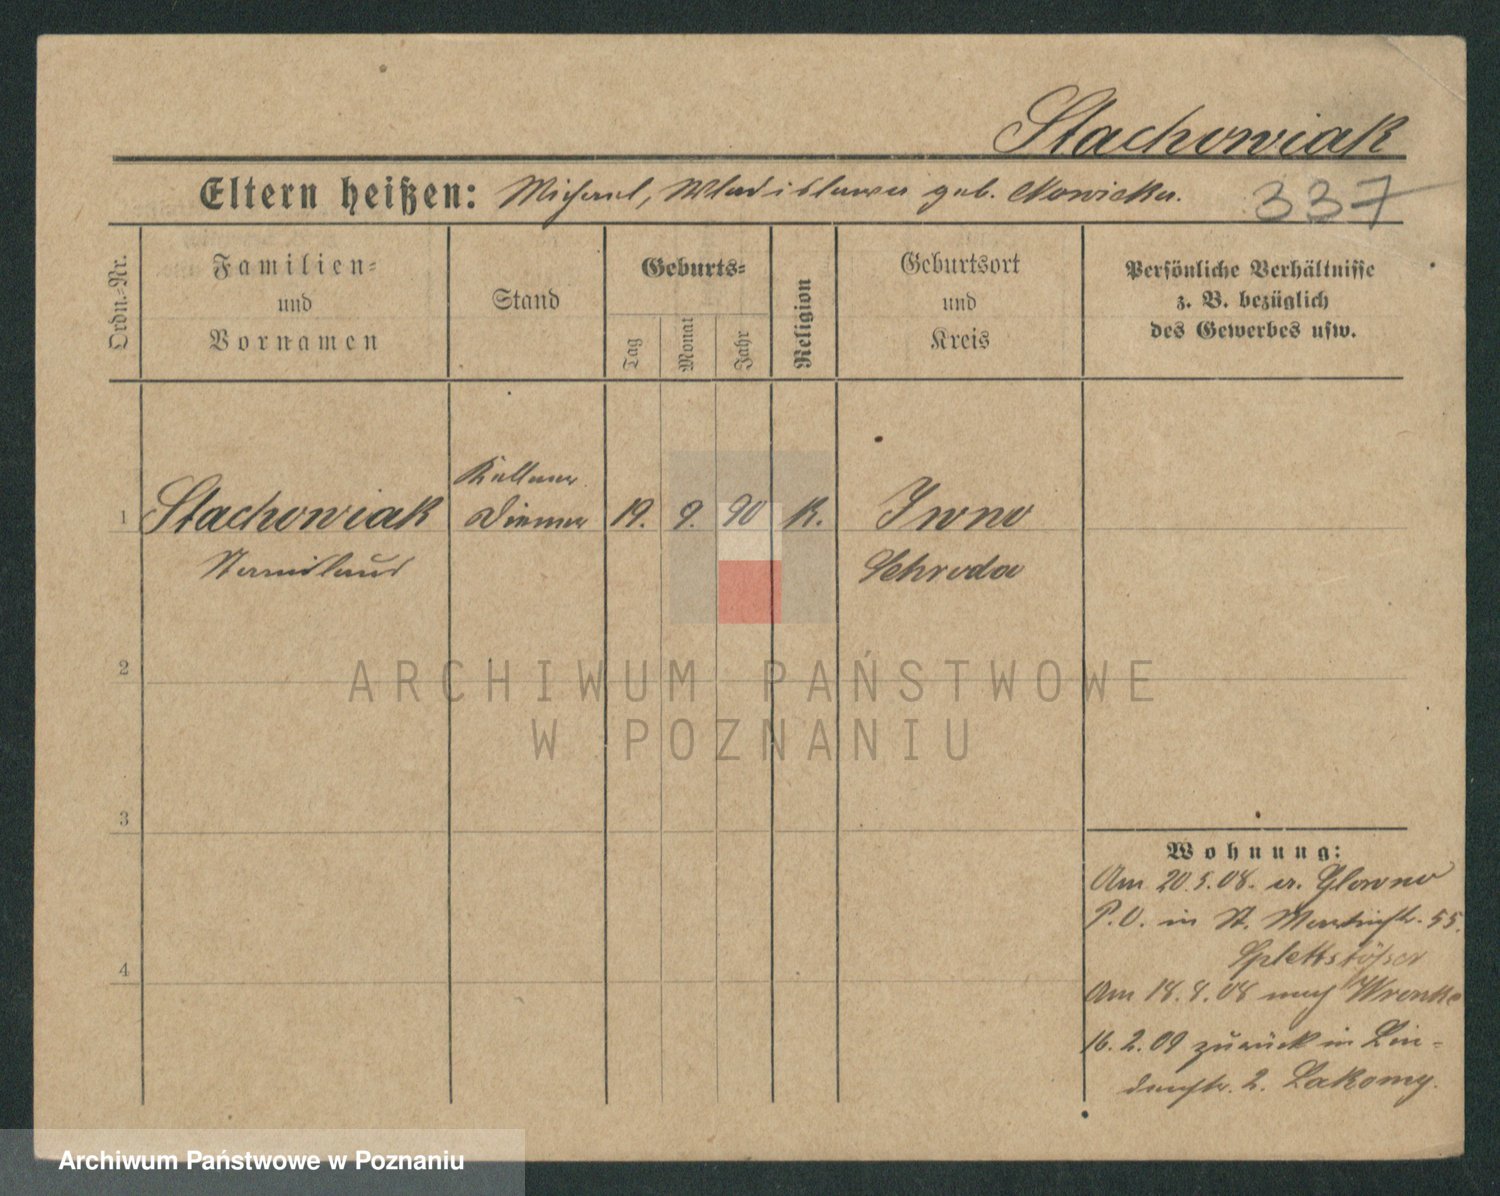 Stachowiak
Eltern heißen: Michael, Wladislawa geb. Nowicka.
337
Ordn.-Nr.
Familien-
und
Vornamen
Stand
Geburts-
Tag
Monat
Jahr
Religion
Geburtsort
und
Kreis
Persönliche Verhältnisse
z. B. bezüglich
des Gewerbes usw.
Kellner
1 Stachowiak Diener 19. 9. 90 K. Iwno
Stanislaus Schroda
2
ARCHIWUM PAŃSTWOWE
W POZNANIU
3
Wohnung:
Am 20.5.08. a. Glowno
P.O. in St. Martinstr. 55.
Splettstößer
4
Am 18.8.08 nach Wronke
16.2.09 zurück in Lin-
denstr. 2. Lakomy.
Archiwum Państwowe w Poznaniu